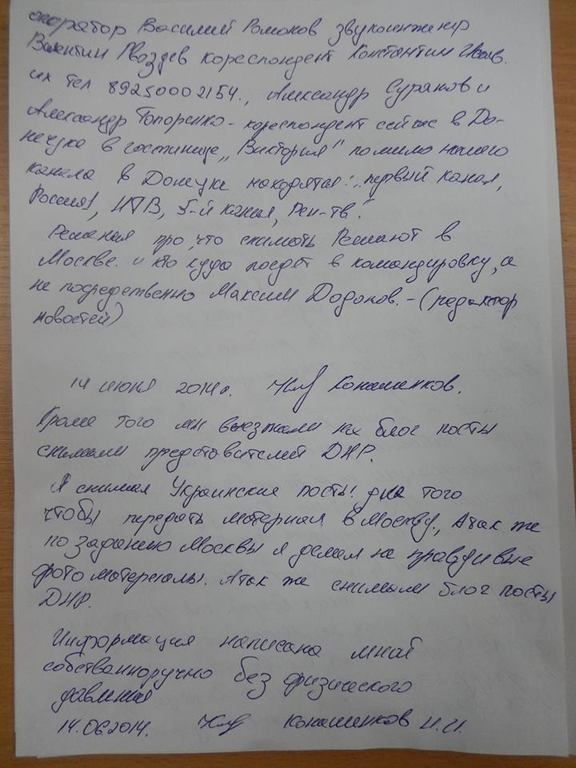 оператор Василий Романов звукоинженер
Валентин Гвоздев кореспондент Константин
их тел 89250002154., Александр Суранов и
Александр Топоренко - кореспондент сейчас в До-
нецке в гостинице „Виктория" помимо нашего
канала в Донецке находятся: „первый канал,
Россия1, НТВ, 5-й канал, Рен-ТВ."
Решения про, что снимать Решают в
Москве. и кто куда поедет в командировку, а
не посредственно Максим Додонов. - (редактор
новостей)
14 июня 2014г. Конашенков.
Кроме того мы выезжали на блог посты
снимали представителей ДНР.
Я снимал Украинские посты для того
чтобы передать материал в Москву., А так же
по заданию Москвы я делал не правдивые
фото материалы. А так же снимали блог посты
ДНР.
Информация написана мной
собственноручно без физического
давления
14.06.2014. Конашенков И.И.